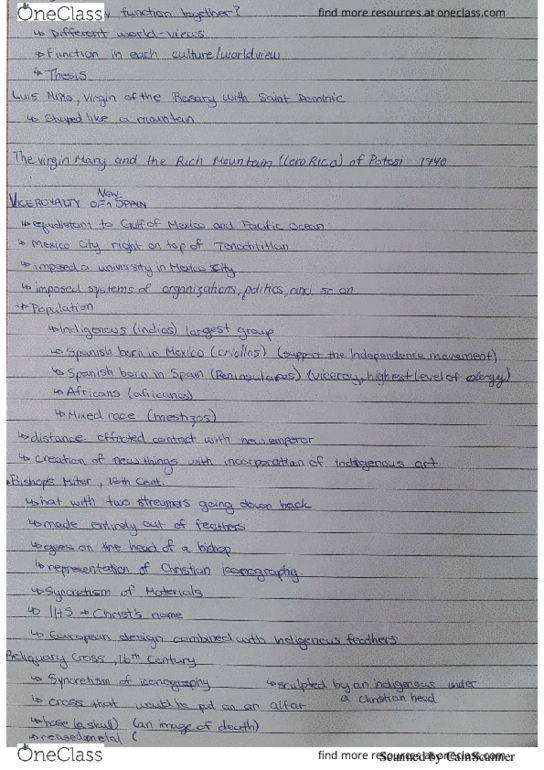 OneClass
find more resources at oneclass.com
function together?
↳ Different world-views
↳ Function in each culture/worldview
↳ Thesis
Luis Niño, Virgin of the Rosary with Saint Dominic
↳ Shaped like a mountain
The virgin Mary and the Rich Mountain (Cerro Rica) of Potosi 1740
VICEROYALTY OF New SPAIN
↳ equidistant to Gulf of Mexico and Pacific Ocean
↳ Mexico City right on top of Tenochtitlan
↳ imposed a university in Mexico City
↳ imposed systems of organizations, politics, and so on
↳ Population
↳ Indigenous (indios) largest group
↳ Spanish born in Mexico (criollos) (support the Independence movement)
↳ Spanish born in Spain (Peninsulares) (viceroy, highest level of clergy)
↳ Africans (africanos)
↳ Mixed race (mestizos)
↳ distance effected contact with new emperor
↳ creation of new things with incorporation of indigenous art
Bishop's Miter, 16th Cent.
↳ hat with two streamers going down back
↳ made entirely out of feathers
↳ goes on the head of a bishop
↳ representation of Christian iconography
↳ Syncretism of Materials
↳ IHS → Christ's name
↳ European design combined with Indigenous feathers
Reliquary Cross, 16th Century
↳ Syncretism of iconography ↳ sculpted by an indigenous under a Christian head
↳ cross that would be put on an altar
↳ base (a skull) (an image of death)
metal (
OneClass
find more resources at oneclass.com
Scanned by CamScanner